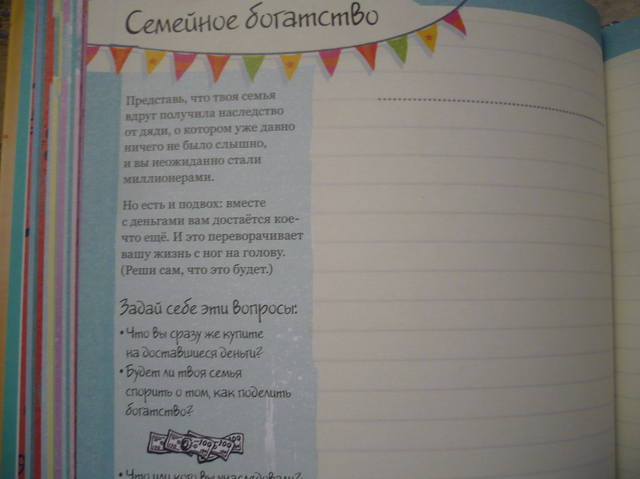 Семейное богатство
Представь, что твоя семья
вдруг получила наследство
от дяди, о котором уже давно
ничего не было слышно,
и вы неожиданно стали
миллионерами.
Но есть и подвох: вместе
с деньгами вам достаётся кое-
что ещё. И это переворачивает
вашу жизнь с ног на голову.
(Реши сам, что это будет.)
Задай себе эти вопросы:
• Что вы сразу же купите
на доставшиеся деньги?
• Будет ли твоя семья
спорить о том, как поделить
богатство?
100
• Что или кого вы унаследовали?